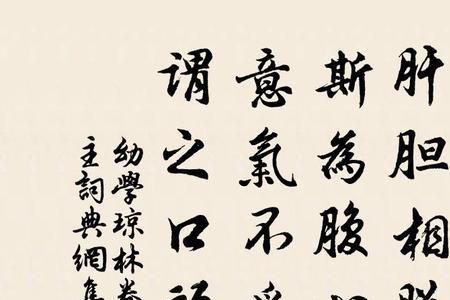 肝胆相
斯為腹
意氣不
謂之口
幼學琼林卷
主詞典網